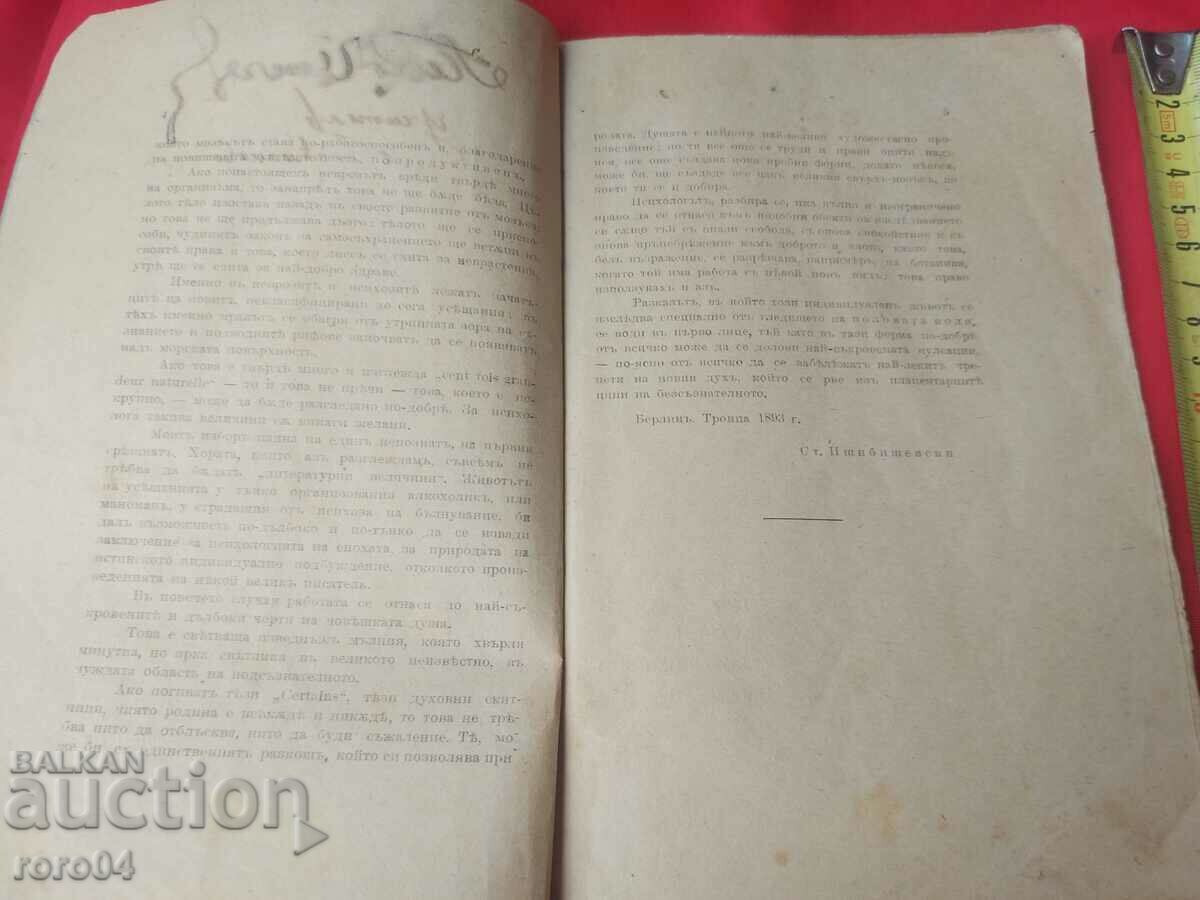 който мозъкът става
на новишания чувства
Ако понастоящем неврозътъ врѣди твърдѣ много
на организма, то занапрѣдъ това не ще бѫде бѣда.
лото тѣло изостава назадъ въ своето развитие отъ мозъка,
но това не ще продължава дълго: тѣлото ще се приспо-
соби, чудниятъ законъ на самосъхранението ще встѫпи въ
своитѣ права и това, което днесъ се смѣта за неврастения,
утрѣ ще се смѣта за най-добро здраве.
Именно въ неврозитѣ и психозитѣ лежатъ зачат-
цитѣ на новитѣ, некласифицирани до сега усѣщания; въ
тѣхъ именно мракътъ се обагря отъ утринната зора на съ-
знанието и подводнитѣ рифове започватъ да се появяватъ
надъ морската повърхность.
Ако това е твърдѣ много и изглежда „cent fois gran-
deur naturelle“ — то и това не прѣчи — това, което е по-
крупно, — може да бѫде разгледано по-добрѣ. За психо-
лога такива величини сѫ винаги желани.
Моятъ изборъ падна на единъ непознатъ, на първия
срѣщнатъ. Хората, които азъ разглеждамъ, съвсѣмъ не
трѣбва да бѫдатъ „литературни величини“. Животътъ
на усѣщанията у тънко организования алкохоликъ, или
маномана, у страдащия отъ психоза на бълнувание, би
далъ възможность по-дълбоко и по-тънко да се извади
заключение за психологията на епохата, за природата на
истинското индивидуално подбуждение, отколкото произ-
веденията на нѣкой великъ писатель.
Въ повечето случаи работата се отнася до най-съ-
кровенитѣ и дълбоки черти на човѣшката душа.
Това е свѣтваща изведнъжъ мълния, която хвърля
минутна, но ярка свѣтлина въ великото неизвѣстно, въ
чуждата область на подсъзнателното.
Ако погиватъ тѣзи „Certains“, тѣзи духовни скит-
ници, чиято родина е всѣкждѣ и никждѣ, то това не трѣ-
бва нито да отблъсква, нито да буди съжаление. Тѣ, мо-
же би, сѫ единствениятъ разкошъ, който си позволява при-
5
родата. Душата е нейното най-велико художествено про-
изведение; по тѣ все още се труди и прави опитъ надъ
нея, все още създава нови пробни форми, докато нѣкога,
може би, ще създаде все пакъ великия свръхъ-мозъкъ, до
който тя се и добира.
Психологътъ, разбира се, има пълно и неограничено
право да се отнася къмъ подобни обекти на изслѣдването
си сѫщо тъй съ онази свобода, съ онова спокойствие и съ
онова прѣнебрѣжение къмъ доброто и злото, както това,
безъ възражение, се разрѣшава, напримѣръ, на ботаника,
когато той има работа съ нѣкой новъ видъ: това право
използувахъ и азъ.
Разказътъ, въ който този индивидуаленъ животъ се
изслѣдва специално отъ гледището на половата воля,
се води въ първо лице, тъй като въ тази форма по-добрѣ
отъ всичко може да се доловя най-съкровената пулсация,
— по-ясно отъ всичко да се забѣлѣжатъ най-лекитѣ тре-
пети на новия духъ, който се рве изъ плацентарнитѣ
ципи на безсъзнателното.
Берлинъ. Троица 1893 г.
Ст. Пшибишевски
BALKAN
auction
roro04